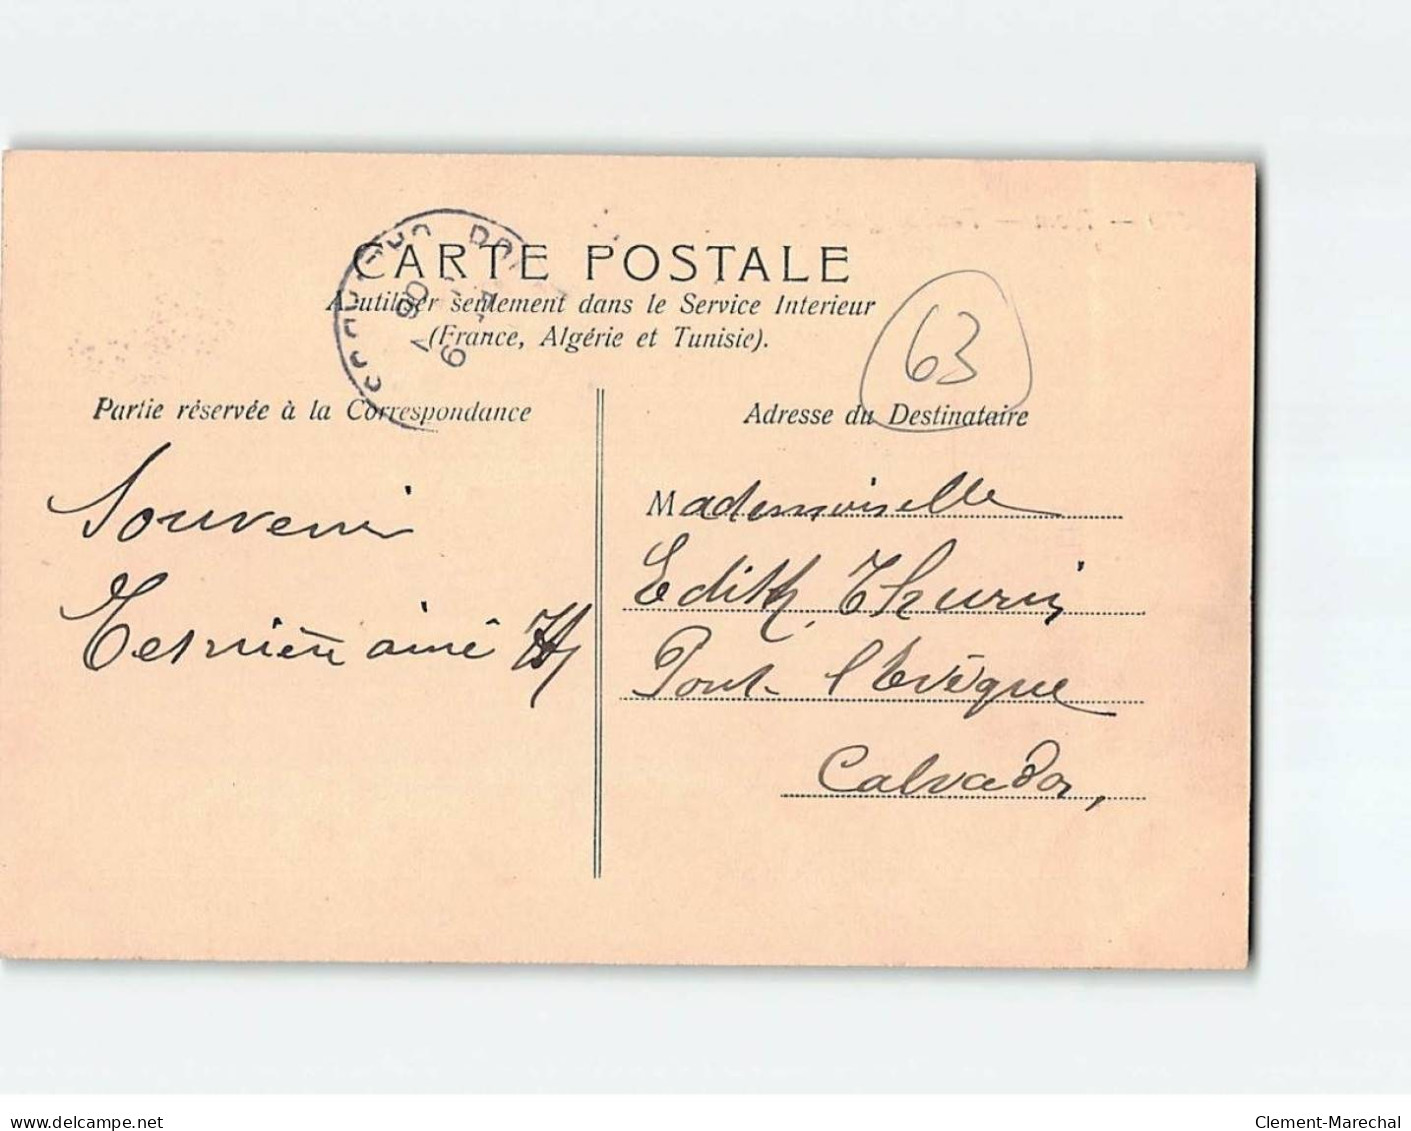 CARTE POSTALE
A utiliser seulement dans le Service Interieur
(France, Algérie et Tunisie).
63
Partie réservée à la Correspondance
Adresse du Destinataire
Souvenir
ainé
Mademoiselle
Edith Thurin
Pont-l'Evêque
Calvados,
delcampe.net
Clement-Marechal